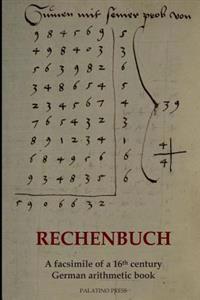 Sumen mit seiner prob von
9 8 4 5 6 9
4 9 8 4 0 3
5 6 3 9 8 2
6 3 4 8 5 6
2 3 4 5 6 7 39
7 6 5 4 3 2
8 9 1 2 3 4 4
6 8 4 9 5 6 4
5 9 0 6 6 3 2
RECHENBUCH
A facsimile of a 16th century
German arithmetic book
PALATINO PRESS